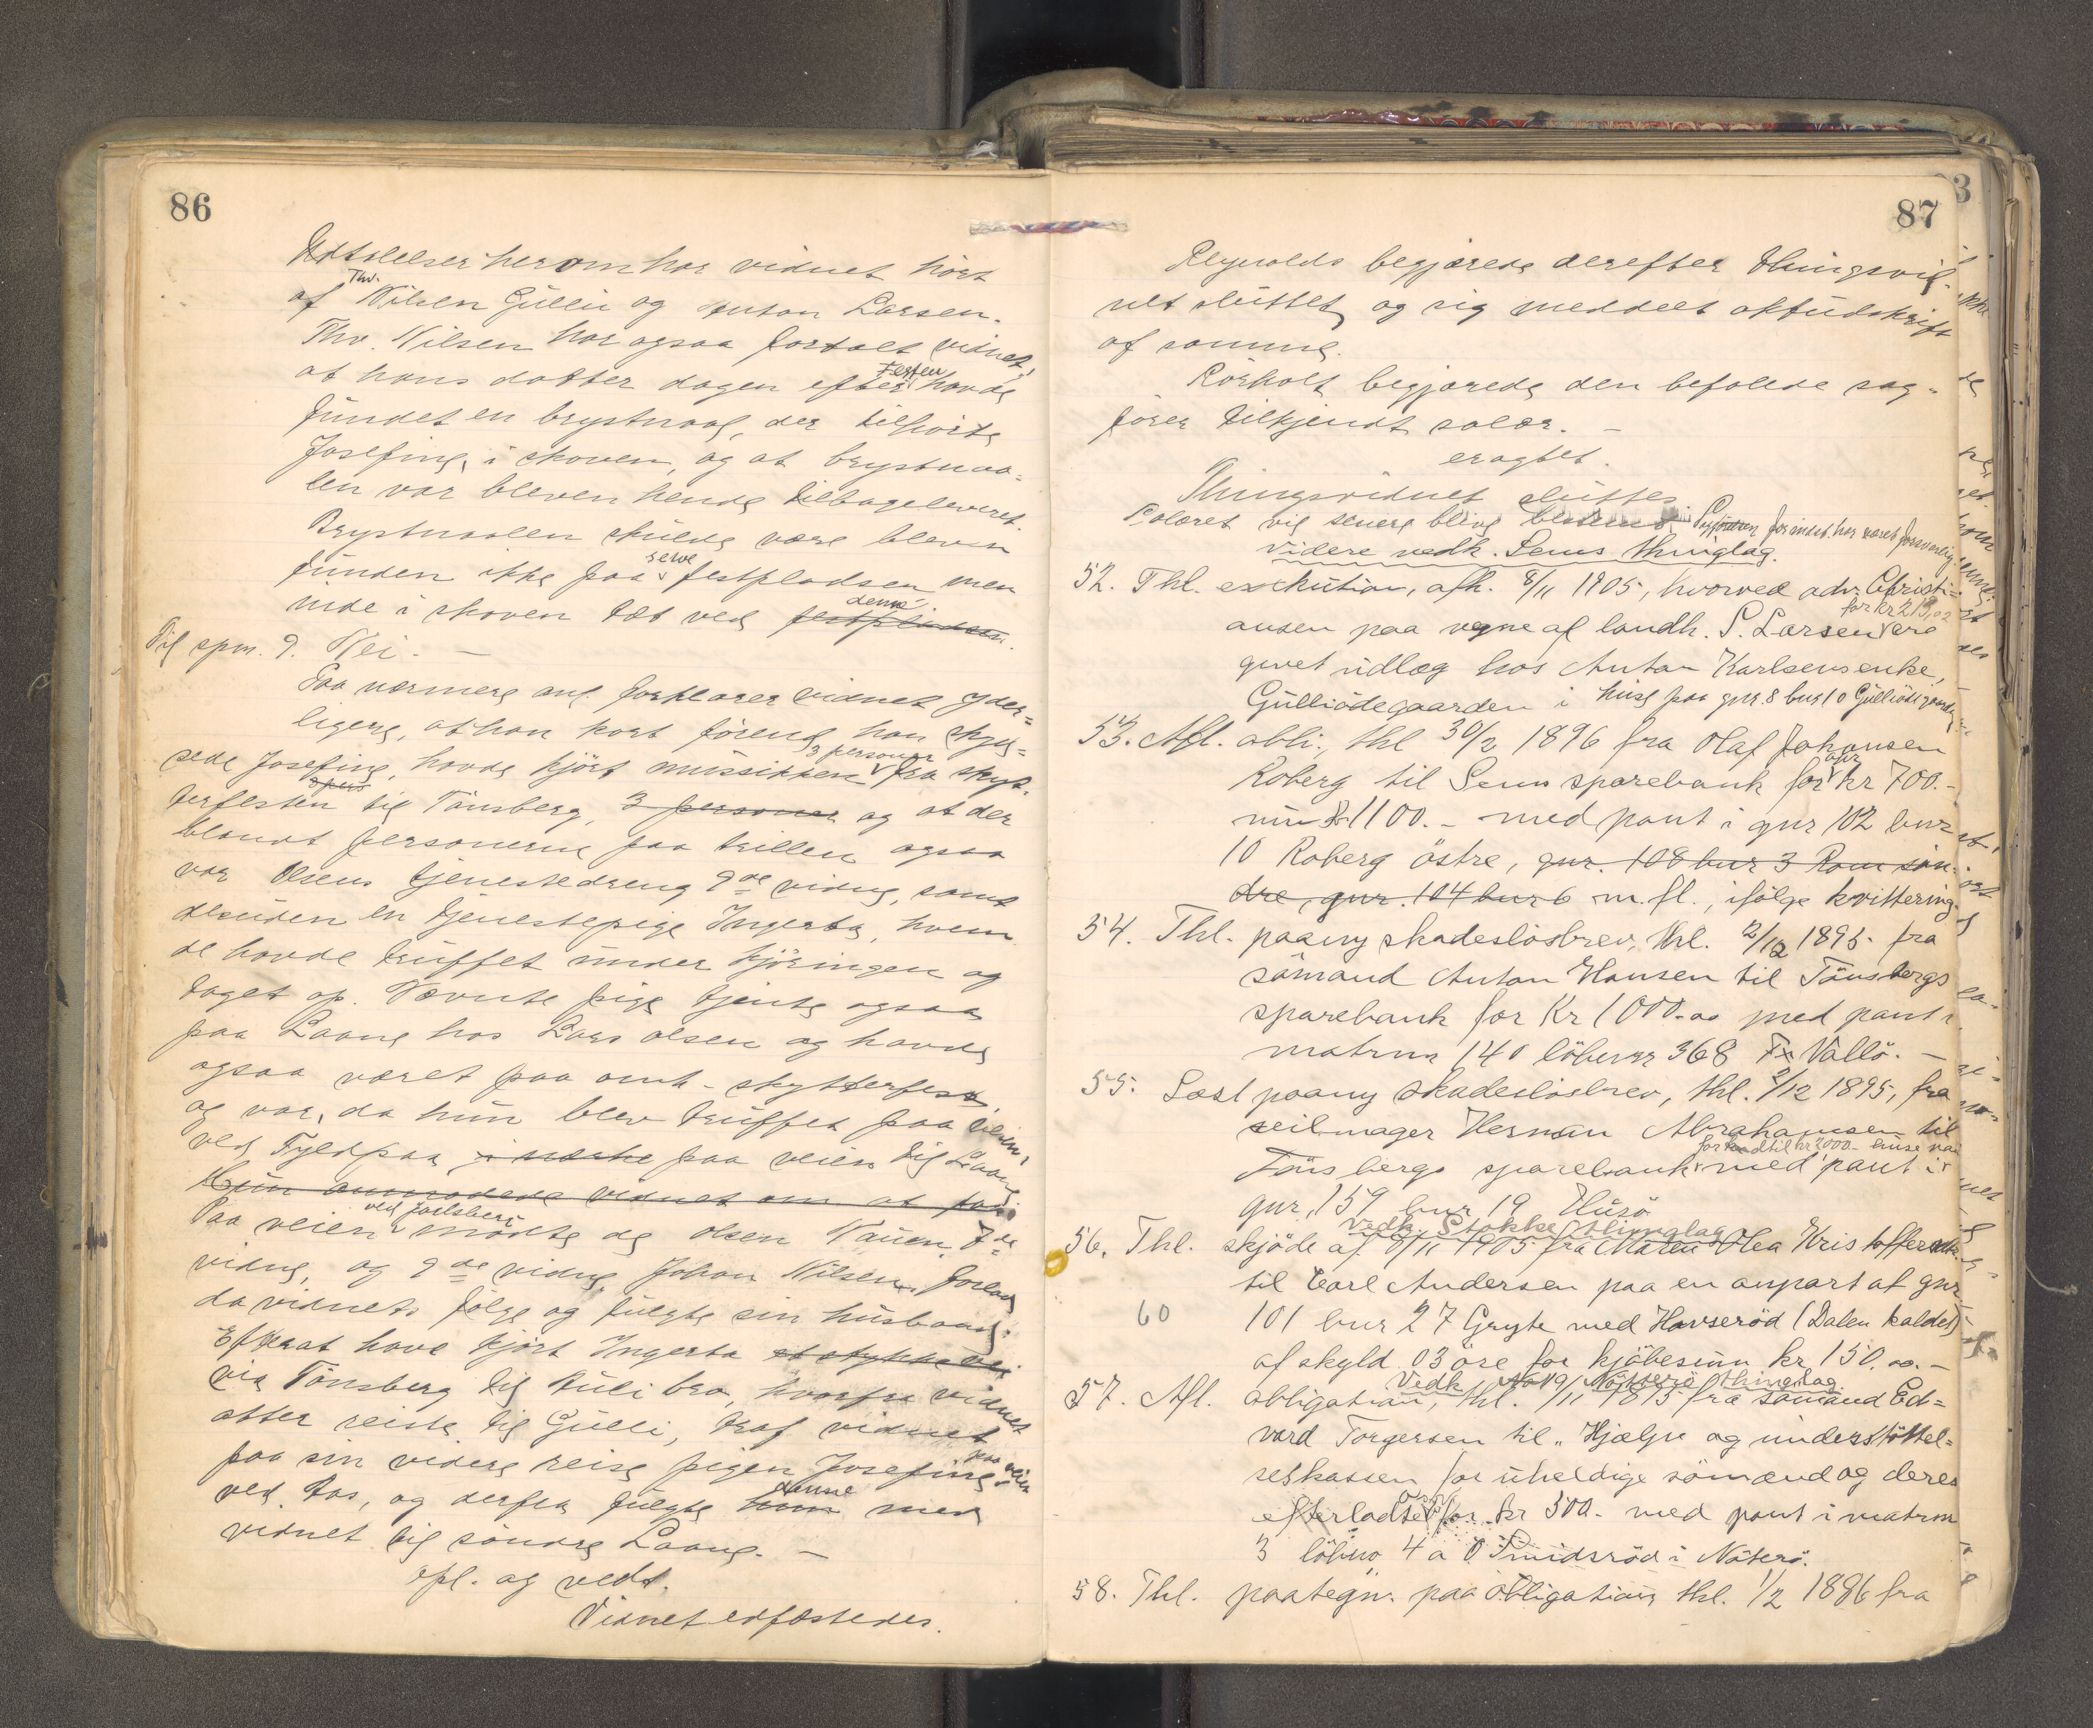 86
Udtalelser herom har vidnet hört
af Thv. Nilsen Gulli og Anton Larsen.
Thv. Nilsen har ogsaa fortalt vidnet,
at hans datter dagen efter festen havde
fundet en brystnaal, der tilhörte
Josefine, i skoven, og at brystnaa-
len var bleven hende tilbageleveret.
Brystnaalen skulde være bleven
funden ikke paa selve festpladsen men
inde i skoven tæt ved festpladsen denne.
Til spm. 9. Nei. —
Paa nærmere anl. forklarer vidnet yder-
ligere, at han kort förend han skys-
sede Josefine, havde kjört mussikken 3 personer fra skyt-
terfesten til Tönsberg, 3 personer og at der
blandt personerne paa trillen ogsaa
var Olsens tjenestedreng 9de vidne, samt
desuden en tjenestepige Ingerta, hvem
de havde truffet under kjöringen og
taget op. Nævnte pige tjente ogsaa
paa Laane hos Lars Olsen og havde
ogsaa været paa amt-skytterfest
og var, da hun blev truffet paa
ved Fyldpaa paa veien til Laane
Hun anmodede vidnet om at faa
Paa veien ved Jarlsberg mödte de Olsen Nauen, 7de
vidne, og 9de vidne, Johan Nilsen, forlod
da vidnets fölge og fulgte sin husbond.
Efterat have kjört Ingerta et stykke
via Tönsberg til Kuli bro, hvorfra vidnet
atter reiste til Gulli, traf vidnet
paa sin videre reise pigen Josefine paa veien
ved Ras, og derfra fulgte hun denne med
vidnet til söndre Laane. —
Opl. og vedt.
Vidnet edfæstedes.
87
Reynolds begjærede derefter thingsvid-
net sluttet og sig meddelt aktudskrift
af samme.
Rörholt begjærede den befalede sag-
förer tilkjendt salær. —
eragtet.
Thingsvidnet sluttes
Salæret vil senere blive bestemt. Sagförelsen forindet har været forsvarlig.
Videre vedk. Sems thinglag.
52. Thl. exekution, afh. 8/11 1905, hvorved adv. Christi-
ansen paa vegne af landh. S. Larsen for kr 213,02 ere
givet udlæg hos Anton Karlsens enke,
Gulliödegaarden i huse paa gnr. 8 bnr 10 Gulliödegaarden
53. Afl. obli., thl 30/2 1896 fra Olaf Johansen
Roberg til Sems sparebank for opr kr 700.-
nu 1100.- med pant i gnr 102 bnr
10 Roberg östre, gnr. 108 bnr 3 Rom sön-
dre, gnr. 104 bnr 6 m. fl., ifölge kvittering
54. Thl. paany skadeslösbrev, thl. 2/12 1895 fra
sömand Anton Hansen til Tönsbergs
sparebank for Kr 1000.oo med pant i
matrnr 140 löbenr 368 Vallö. —
55. Læst paany skadeslösbrev, thl. 2/12 1895, fra
seilmager Herman Abrahamsen til
Tönsbergs sparebank med pant i
gnr, 159 bnr 19 Husö
Vedk. Stokke thinglag
56. Thl. skjöde af 8/11 1905 fra Maren Olea Kristoffersdtr.
til Carl Andersen paa en anpart af gnr
60 101 bnr 27 Gryte med Havseröd (Dalen kaldet)
af skyld 03 öre for kjöbesum kr 150.oo.—
Vedk. Nötterö thinglag
57. Afl. obligation, thl. 19/11 1895 fra sömand Ed-
vard Torgersen til „Hjælpe og understöttel-
seskassen for uheldige sömænd og deres
efterladte" for kr 500.- med pant i matrnr
3 löbno 4 a Smidsröd i Nöterö.
58. Thl. paategn. paa obligation, thl. 1/2 1886 fra